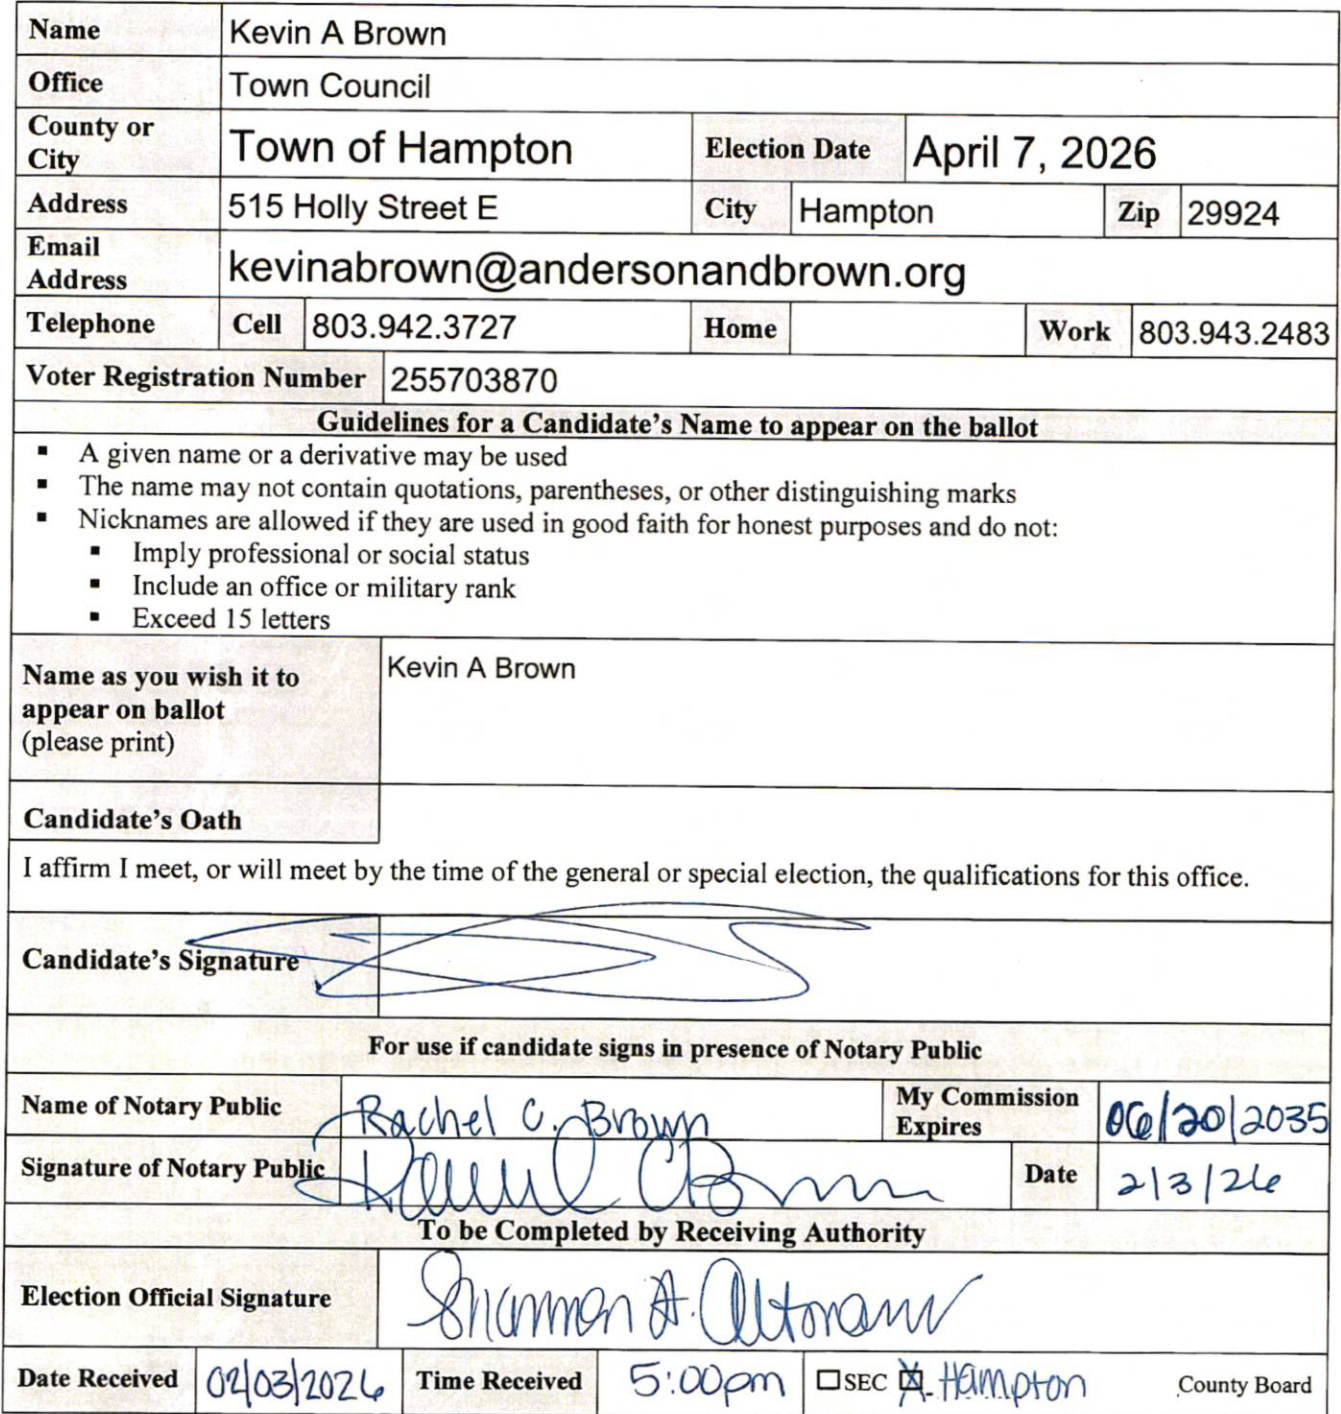 Name Kevin A Brown
Office Town Council
County or City Town of Hampton Election Date April 7, 2026
Address 515 Holly Street E City Hampton Zip 29924
Email Address kevinabrown@andersonandbrown.org
Telephone Cell 803.942.3727 Home Work 803.943.2483
Voter Registration Number 255703870
Guidelines for a Candidate's Name to appear on the ballot
▪ A given name or a derivative may be used
▪ The name may not contain quotations, parentheses, or other distinguishing marks
▪ Nicknames are allowed if they are used in good faith for honest purposes and do not:
▪ Imply professional or social status
▪ Include an office or military rank
▪ Exceed 15 letters
Name as you wish it to appear on ballot (please print) Kevin A Brown
Candidate's Oath
I affirm I meet, or will meet by the time of the general or special election, the qualifications for this office.
Candidate's Signature
For use if candidate signs in presence of Notary Public
Name of Notary Public Rachel C. Brown My Commission Expires 06/20/2035
Signature of Notary Public Date 2/3/26
To be Completed by Receiving Authority
Election Official Signature Shannon A.
Date Received 02/03/2026 Time Received 5:00pm ☐SEC ☒ Hampton County Board